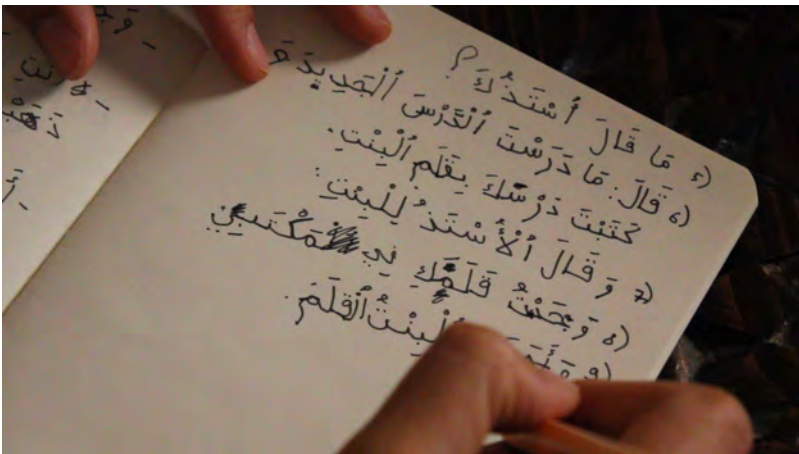 5) مَا قَالَ أُسْتَذُكَ؟
6) قَالَ: مَا دَرَسْتَ ٱلْدَّرْسَ ٱلْجَدِيدَ وَ
كَتَبْتَ دَرْسَكَ بِقَلَمِ ٱلْبِنْتِ.
7) وَ قَالَ ٱلْأُسْتَذُ لِلْبِنْتِ:
8) وَجَدْتُ قَلَمَكِ فِي مَكْتَبِي
9) ٱلْبِنْتُ ٱلْقَلَمَ.